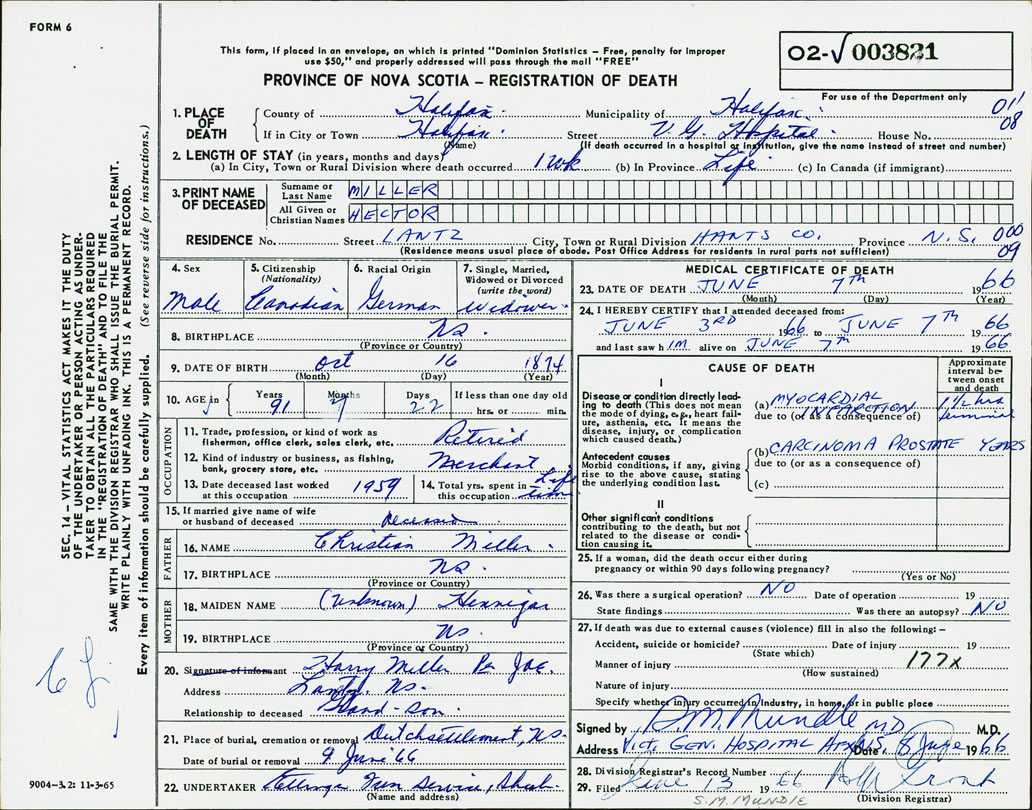 FORM 6
This form, if placed in an envelope, on which is printed "Dominion Statistics – Free, penalty for improper
use $50," and properly addressed will pass through the mail "FREE"
PROVINCE OF NOVA SCOTIA – REGISTRATION OF DEATH
02-√ 003821
For use of the Department only
011
08
1. PLACE OF DEATH
County of Halifax. Municipality of Halifax.
If in City or Town Halifax. Street V.G. Hospital. House No.
(Name) (If death occurred in a hospital or institution, give the name instead of street and number)
2. LENGTH OF STAY (in years, months and days)
(a) In City, Town or Rural Division where death occurred 1 wk (b) In Province Life (c) In Canada (if immigrant)
3. PRINT NAME OF DECEASED
Surname or Last Name MILLER
All Given or Christian Names HECTOR
RESIDENCE No. Street LANTZ City, Town or Rural Division HANTS CO. Province N.S. 000
(Residence means usual place of abode. Post Office Address for residents in rural parts not sufficient) 09
4. Sex
Male
5. Citizenship
(Nationality)
Canadian
6. Racial Origin
German
7. Single, Married,
Widowed or Divorced
(write the word)
Widower
8. BIRTHPLACE NS.
(Province or Country)
9. DATE OF BIRTH Oct 16 1874
(Month) (Day) (Year)
10. AGE in Years Months Days If less than one day old
91 7 22 hrs. or min.
OCCUPATION
11. Trade, profession, or kind of work as
fisherman, office clerk, sales clerk, etc. Retired
12. Kind of industry or business, as fishing,
bank, grocery store, etc. Merchant
13. Date deceased last worked
at this occupation 1959
14. Total yrs. spent in
this occupation Life time
15. If married give name of wife
or husband of deceased Deceased
FATHER
16. NAME Christian Miller.
17. BIRTHPLACE NS.
(Province or Country)
MOTHER
18. MAIDEN NAME (unknown) Hennigar
19. BIRTHPLACE NS.
(Province or Country)
20. Signature of informant Harry Miller Per
Address Lantz, NS.
Relationship to deceased Grand-Son.
21. Place of burial, cremation or removal Dutchsettlement, NS.
Date of burial or removal 9 June '66
22. UNDERTAKER
(Name and address)
MEDICAL CERTIFICATE OF DEATH
23. DATE OF DEATH JUNE 7TH 1966
(Month) (Day) (Year)
24. I HEREBY CERTIFY that I attended deceased from:
JUNE 3RD 1966 to JUNE 7TH 1966
and last saw him alive on JUNE 7th 1966
CAUSE OF DEATH
Approximate
interval be-
tween onset
and death
I
Disease or condition directly lead-
ing to death (This does not mean
the mode of dying, e.g., heart fail-
ure, asthenia, etc. It means the
disease, injury, or complication
which caused death.)
(a) MYOCARDIAL INFARCTION 1½ hrs
due to (or as a consequence of)
Antecedent causes
Morbid conditions, if any, giving
rise to the above cause, stating
the underlying condition last.
(b) CARCINOMA PROSTATE YEARS
due to (or as a consequence of)
(c)
II
Other significant conditions
contributing to the death, but not
related to the disease or condi-
tion causing it.
25. If a woman, did the death occur either during
pregnancy or within 90 days following pregnancy?
(Yes or No)
26. Was there a surgical operation? NO Date of operation 19
State findings Was there an autopsy? NO
27. If death was due to external causes (violence) fill in also the following:–
Accident, suicide or homicide? Date of injury 19
(State which)
Manner of injury 177x
(How sustained)
Nature of injury
Specify whether injury occurred in industry, in home, or in public place
Signed by D.M. Mundle MD M.D.
Address VICT. GEN. HOSPITAL Date 8 June 1966
28. Division Registrar's Record Number
29. Filed June 13 1966
(Division Registrar)
S.M. MUNDLE
SEC. 14 – VITAL STATISTICS ACT MAKES IT THE DUTY
OF THE UNDERTAKER OR PERSON ACTING AS UNDER-
TAKER TO OBTAIN ALL THE PARTICULARS REQUIRED
IN THE "REGISTRATION OF DEATH" AND TO FILE THE
SAME WITH THE DIVISION REGISTRAR WHO SHALL ISSUE THE BURIAL PERMIT.
WRITE PLAINLY WITH UNFADING INK. THIS IS A PERMANENT RECORD.
Every item of information should be carefully supplied. (See reverse side for instructions.)
9004–3.2: 11-3-65